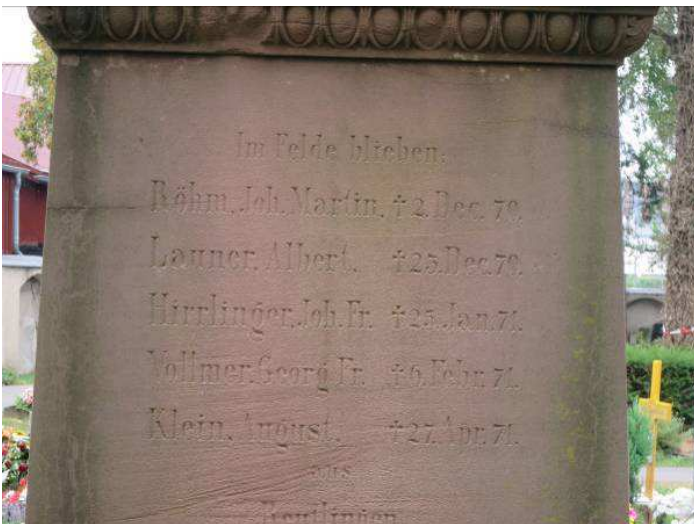 Im Felde blieben:
Röhm, Joh. Martin, † 2. Dec. 70.
Launer, Albert. † 25. Dec. 70.
Hirrlinger, Joh. Fr. † 25. Jan. 71.
Vollmer, Georg Fr. † 6. Febr. 71.
Klein, August. † 27. Apr. 71.
aus
Reutlingen